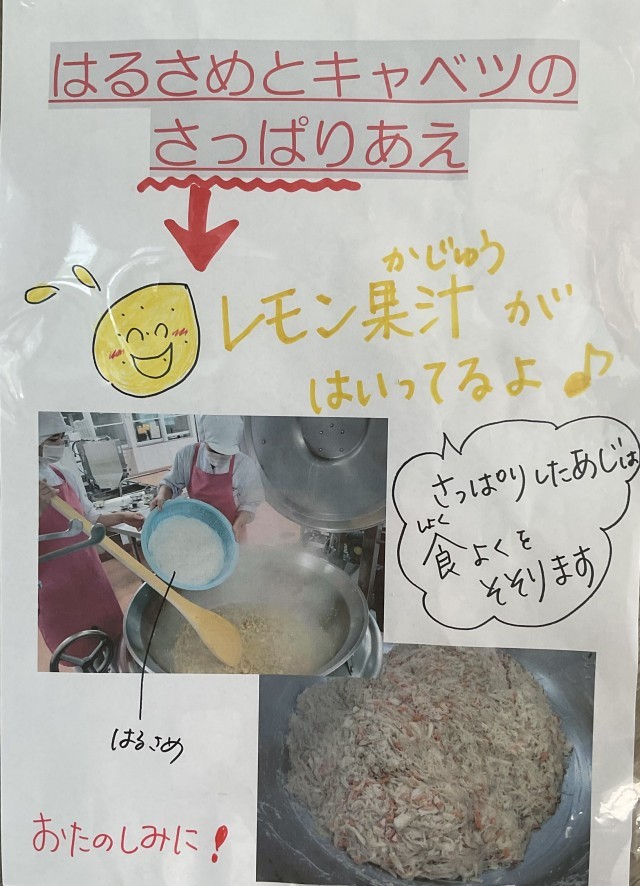 はるさめとキャベツの
さっぱりあえ
かじゅう
レモン果汁が
はいってるよ♪
さっぱりしたあじは
しょく
食よくを
そそります
はるさめ
おたのしみに!